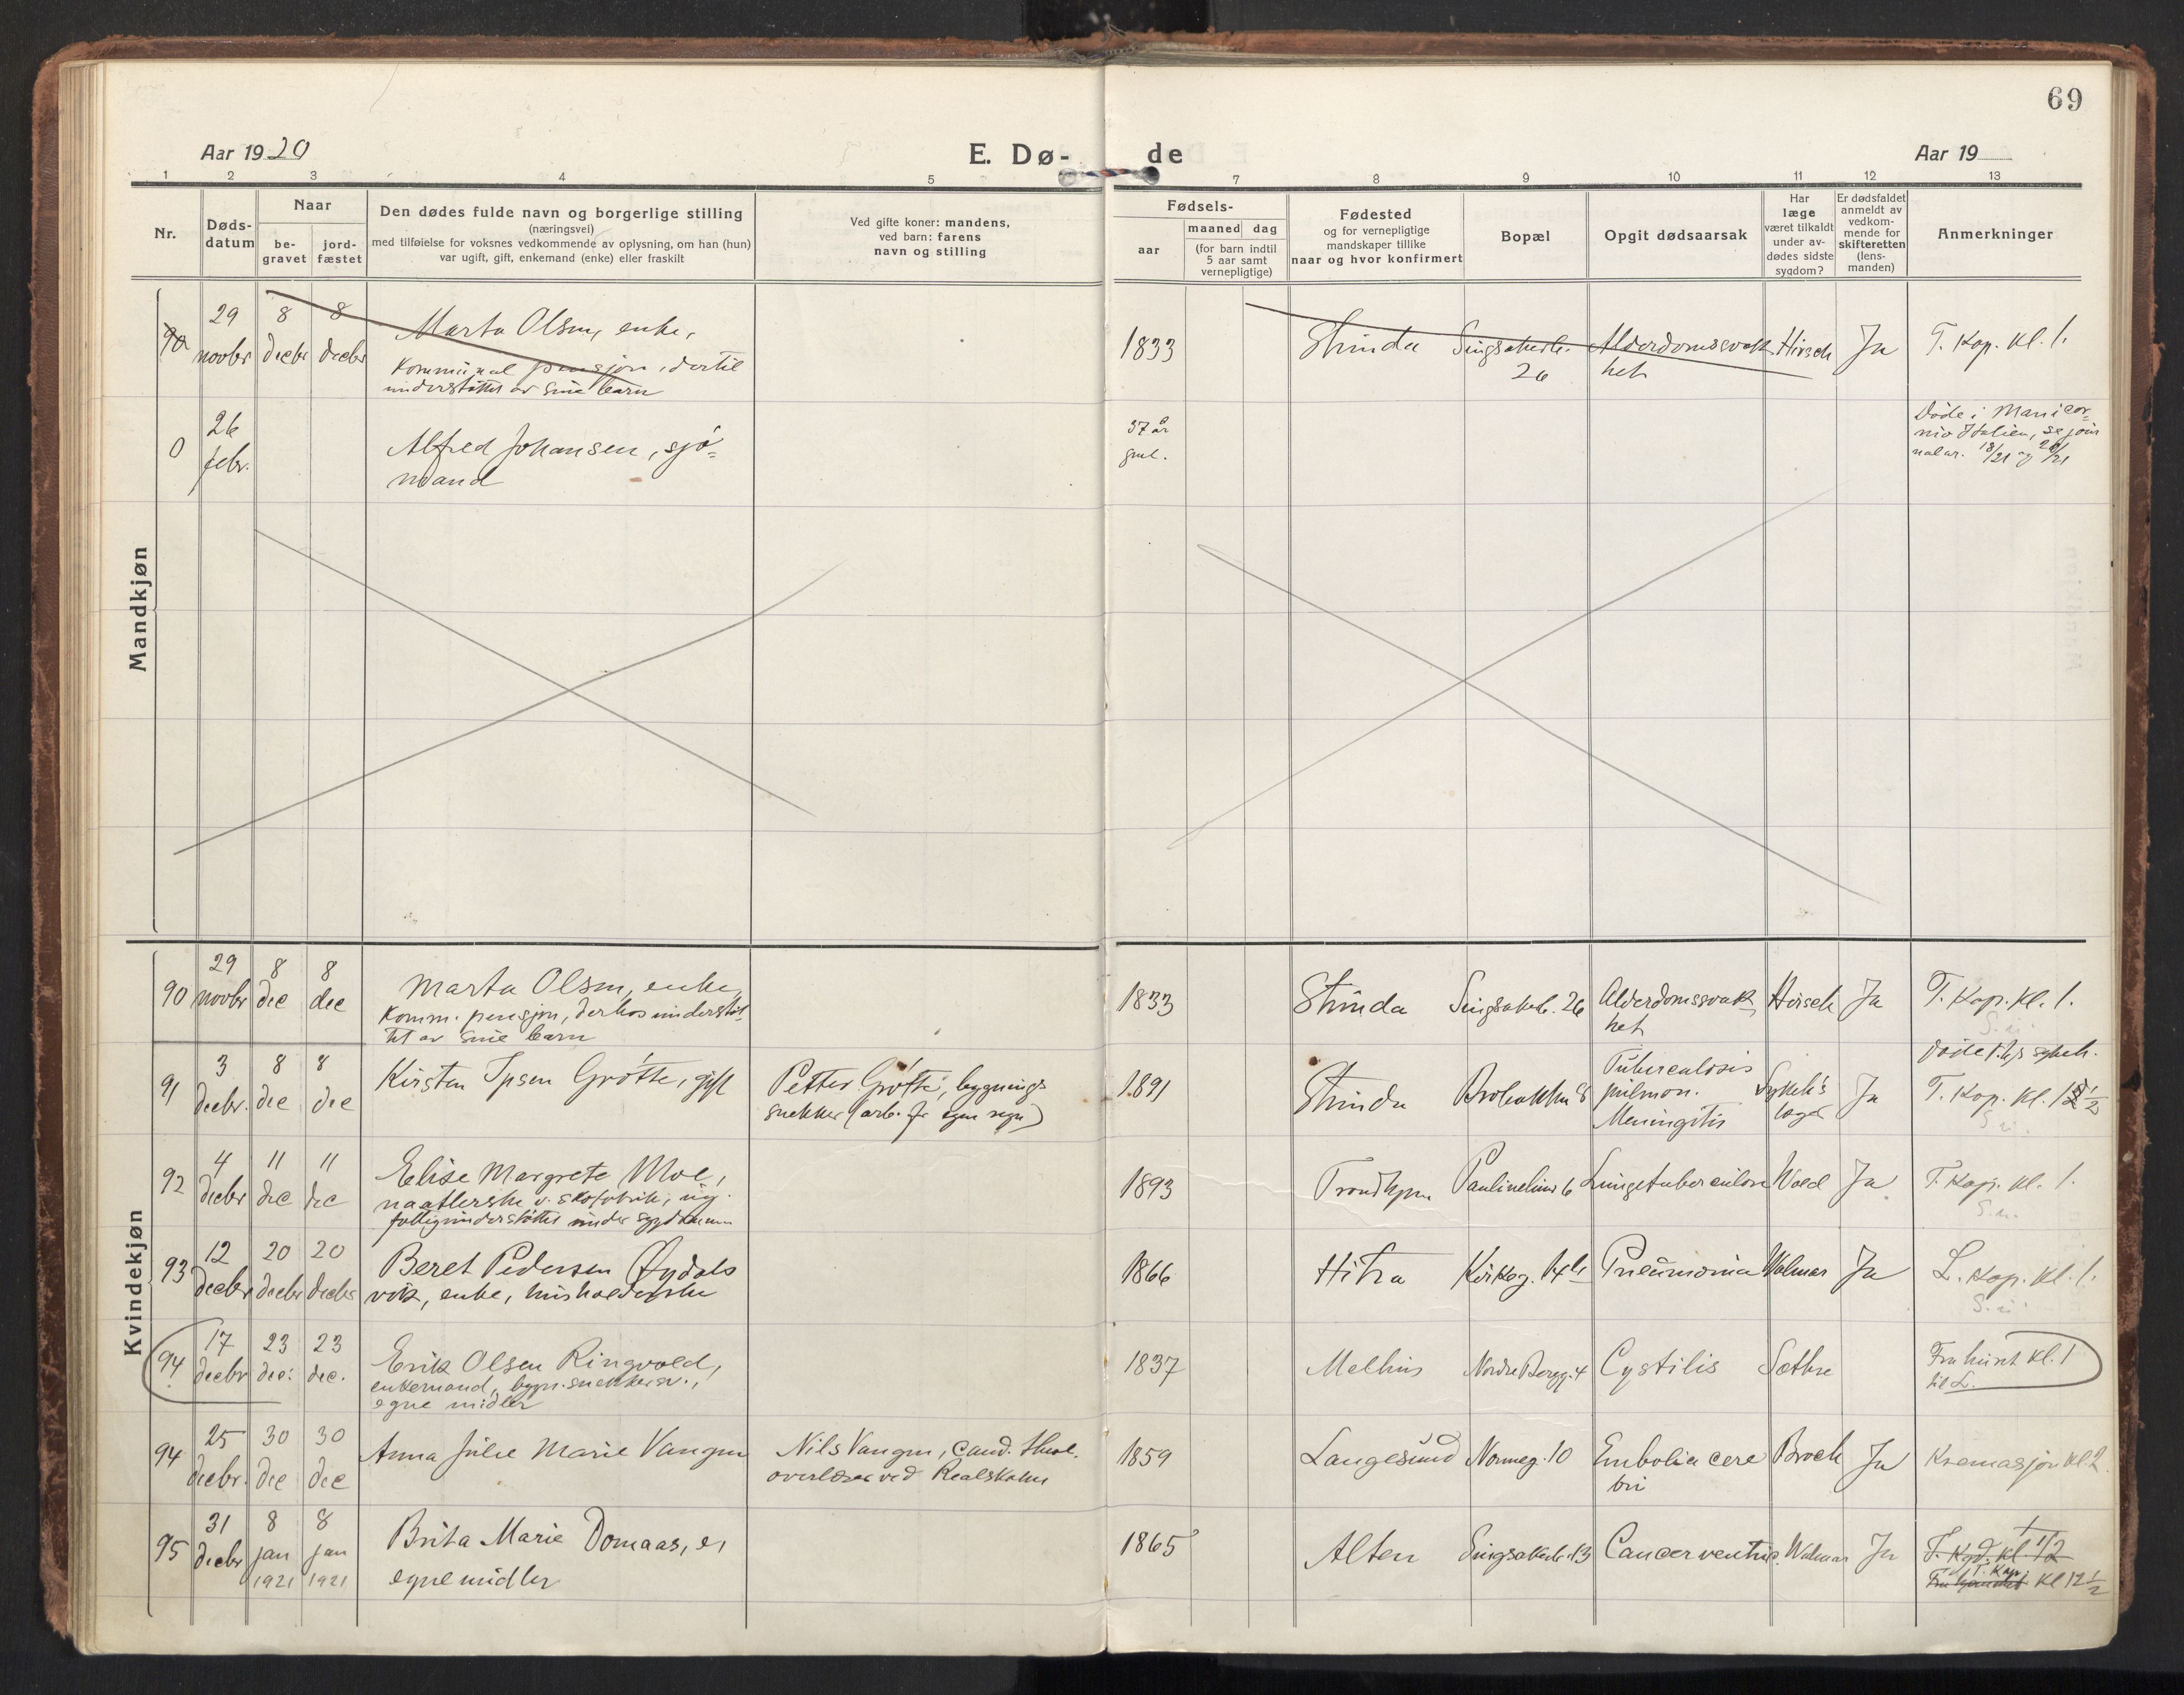 69
Aar 1920
E. Dø-
de
Aar 19
1 2 3 4 5 7 8 9 10 11 12 13
Nr.
Døds-
datum
Naar
be-
gravet
jord-
fæstet
Den dødes fulde navn og borgerlige stilling
(næringsvei)
med tilføielse for voksnes vedkommende av oplysning, om han (hun)
var ugift, gift, enkemand (enke) eller fraskilt
Ved gifte koner: mandens,
ved barn: farens
navn og stilling
Fødsels-
aar
maaned dag
(for barn indtil
5 aar samt
vernepligtige)
Fødested
og for vernepligtige
mandskaper tillike
naar og hvor konfirmert
Bopæl
Opgit dødsaarsak
Har
læge
været tilkaldt
under av-
dødes sidste
sygdom?
Er dødsfaldet
anmeldt av
vedkom-
mende for
skifteretten
(lens-
manden)
Anmerkninger
Mandkjøn
90 29 8 8 Marta Olsen, enke,
novbr decbr decbr kommunal pensjon, dertil
understøttet av sine barn
1833 Strinda Singsakerb. Alderdomssvak Hirsch Ja T. Kap. kl. 1.
26 het
0 26
febr.
Alfred Johansen, sjø-
mand
37 år
gml.
Døde i
Italien, se jour
nalnr. 18/21 og 20/21
Kvindekjøn
90 29 8 8 Marta Olsen, enke,
novbr dec dec komm. pensjon, derhos understøt-
tet av sine barn
1833 Strinda Singsakerb. 26 Alderdomssvak Hirsch Ja T. Kap. kl. 1.
het
91 3 8 8 Kirsten Ipsen Grøtte, gift
decbr. dec dec
Petter Grøtte, bygnings
snekker (arb. for egen regn)
1891 Strinda 8 Tuberculosis
pulmon.
Meningitis
Sykeh's
læger
Ja
T. Kap. kl. 1 1/2
92 4 11 11 Elise Margrete Moe,
decbr dec dec naatlerske v. skofabrik, ug.
fattigunderstøttet under sygdommen
1893 Trondhjem Paulinelund 6 Lungetuberculose Wold Ja T. Kap. kl. 1.
93 12 20 20 Beret Pedersen Øydals
decbr decbr decbr vik, enke, husholderske
1866 Hitra Kirkeg. Pneumonia Walmar Ja L. Kap. kl. 1.
94 17 23 23 Erik Olsen Ringvold,
decbr dec. dec. enkemand, bygn.snekkersv.,
egne midler
1837 Melhus Nordre Bergg. 4 Cystitis Sæthre Fra huset kl. 1
til L.
94 25 30 30 Anna Julie Marie Vangen
decbr. dec dec
Nils Vangen, cand. theol.
overlærer ved Realskolen
1859 Langesund Normeg. 10 Embolia cere Broch Ja Kremasjon kl 2.
bri
95 31 8 8 Brita Marie Domaas, e,
decbr jan jan egne midler
1921 1921
1865 Alten Singsakerb. 13 Cancer ventric. Walmar Ja
T. Kap. Kl 12 1/2